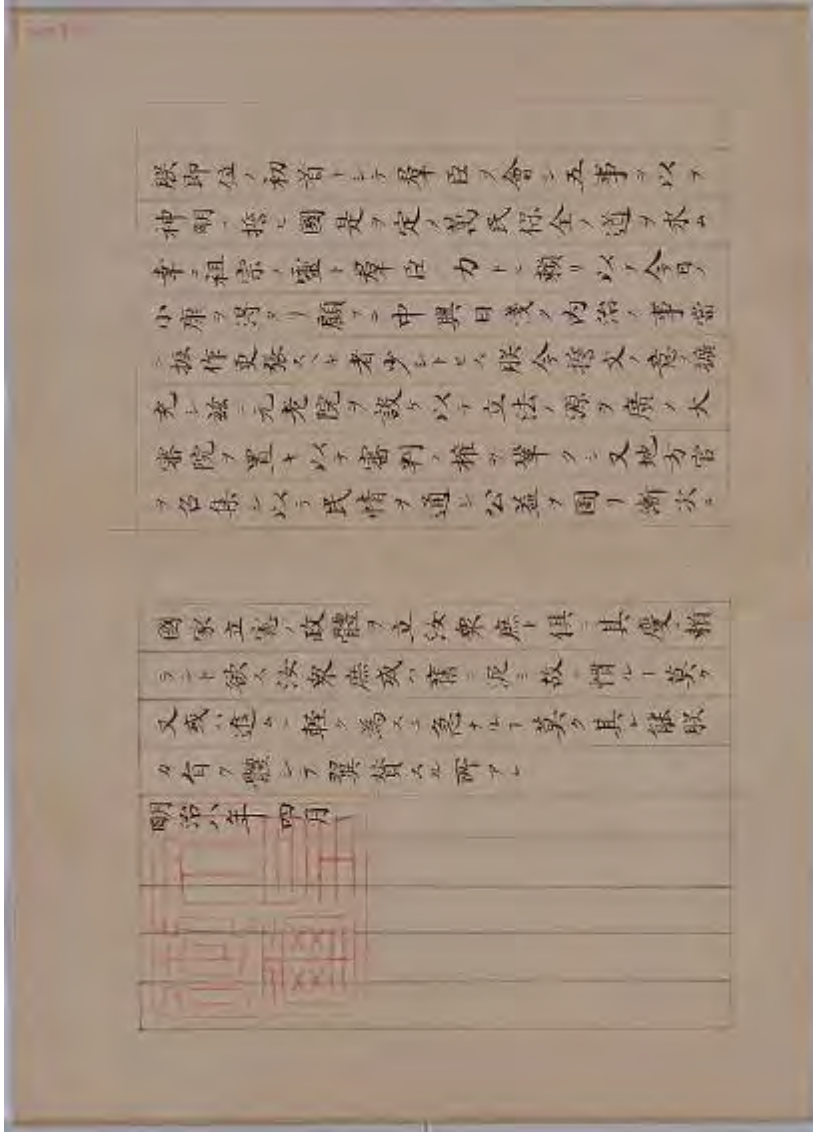 朕即位ノ初首トシテ羣臣ヲ會シ五事ヲ以テ
神明ニ誓ヒ國是ヲ定メ萬民保全ノ道ヲ求ム
幸ニ祖宗ノ靈ト羣臣ノ力トニ頼リ以テ今日ノ
小康ヲ得タリ顧フニ中興日淺ク内治ノ事當
ニ振作更張スヘキ者少シトセス朕今誓文ノ意ヲ擴
充シ茲ニ元老院ヲ設ケ以テ立法ノ源ヲ廣メ大
審院ヲ置キ以テ審判ノ權ヲ鞏クシ又地方官
ヲ召集シ以テ民情ヲ通シ公益ヲ圖リ漸次ニ
國家立憲ノ政體ヲ立汝衆庶ト倶ニ其慶ニ頼
ラント欲ス汝衆庶或ハ舊ニ泥ミ故ニ慣ルヽ莫ク
又或ハ進ムニ輕ク為スニ急ナルヿ莫ク其レ能朕
カ旨ヲ體シテ翼贊スル所アレ
明治八年四月